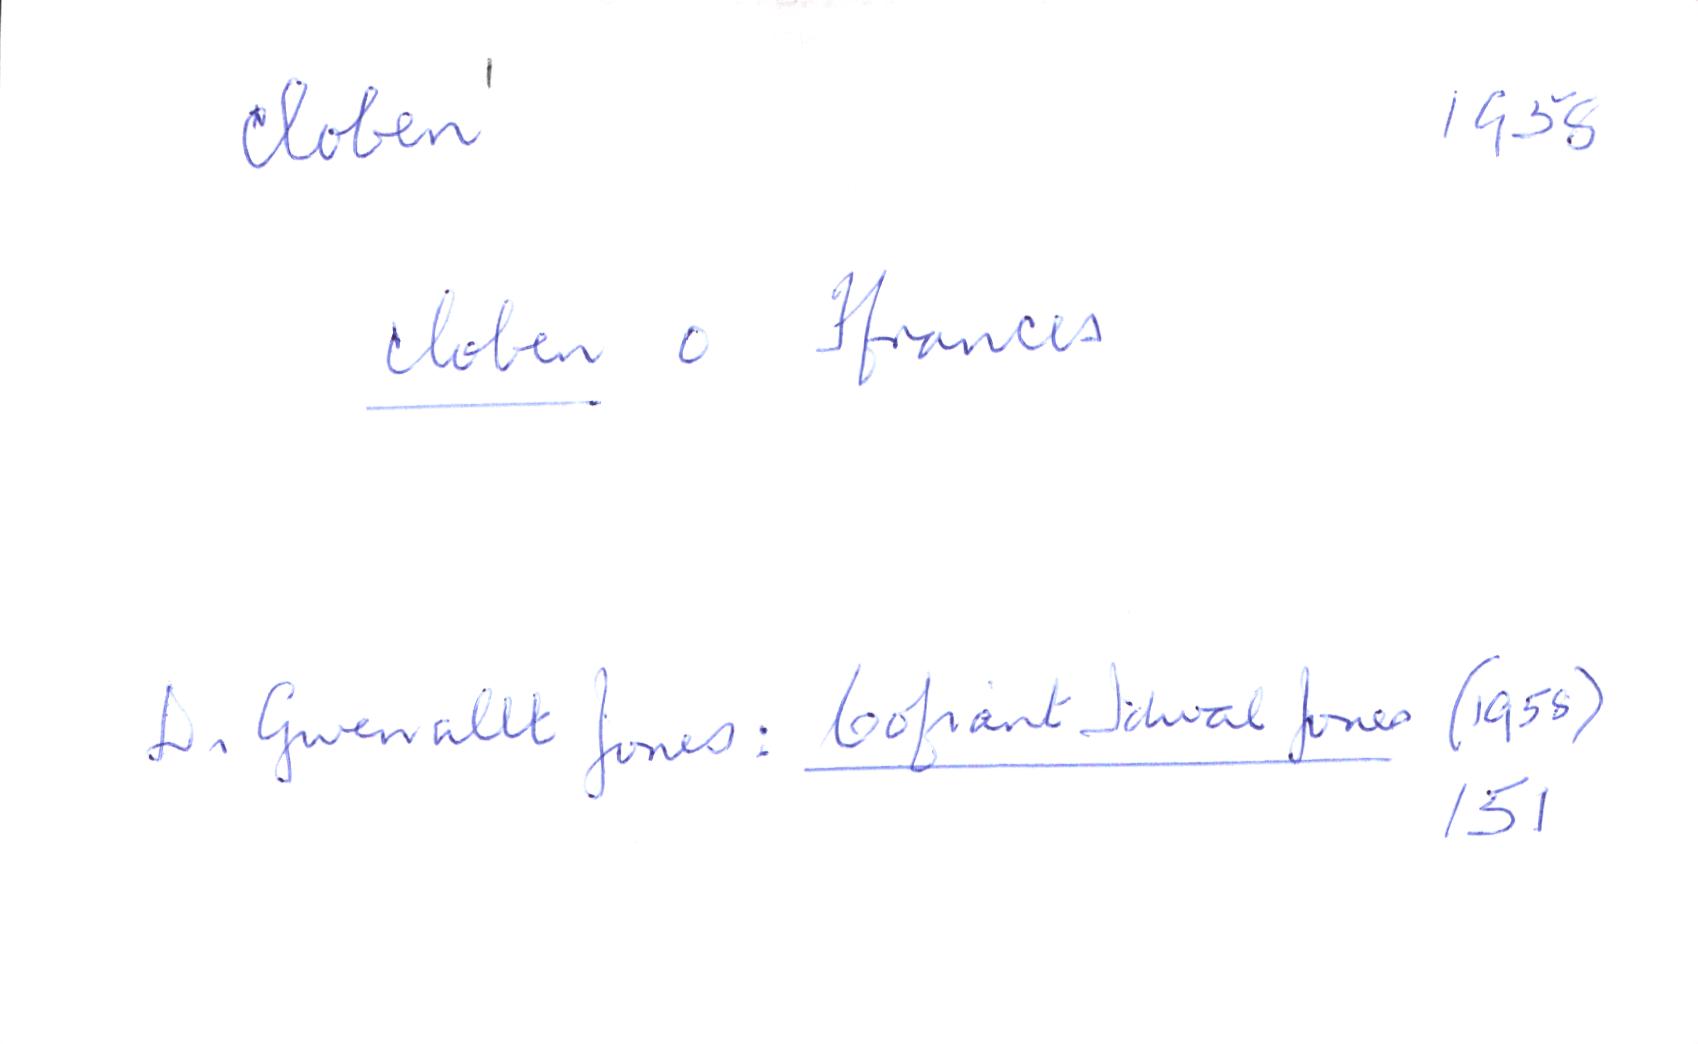 cloben¹ 1958
cloben o Ffrances
D. Gwenallt Jones: Cofiant Idwal Jones (1958)
151